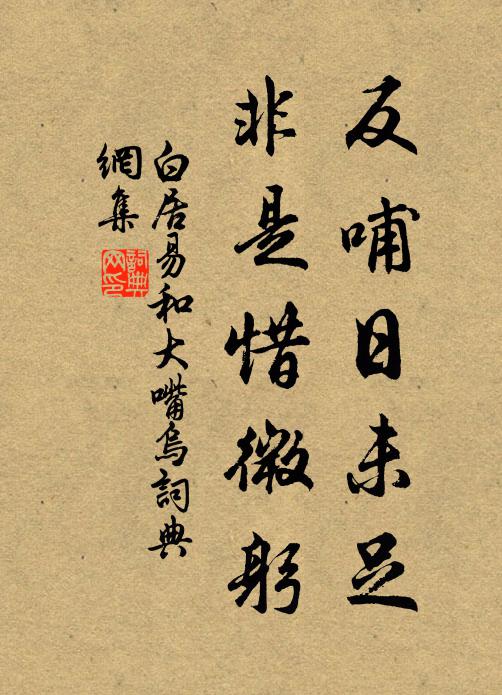 反哺日未足
非是惜微躬
白居易和大嘴烏詞典
網集
詞典
网印